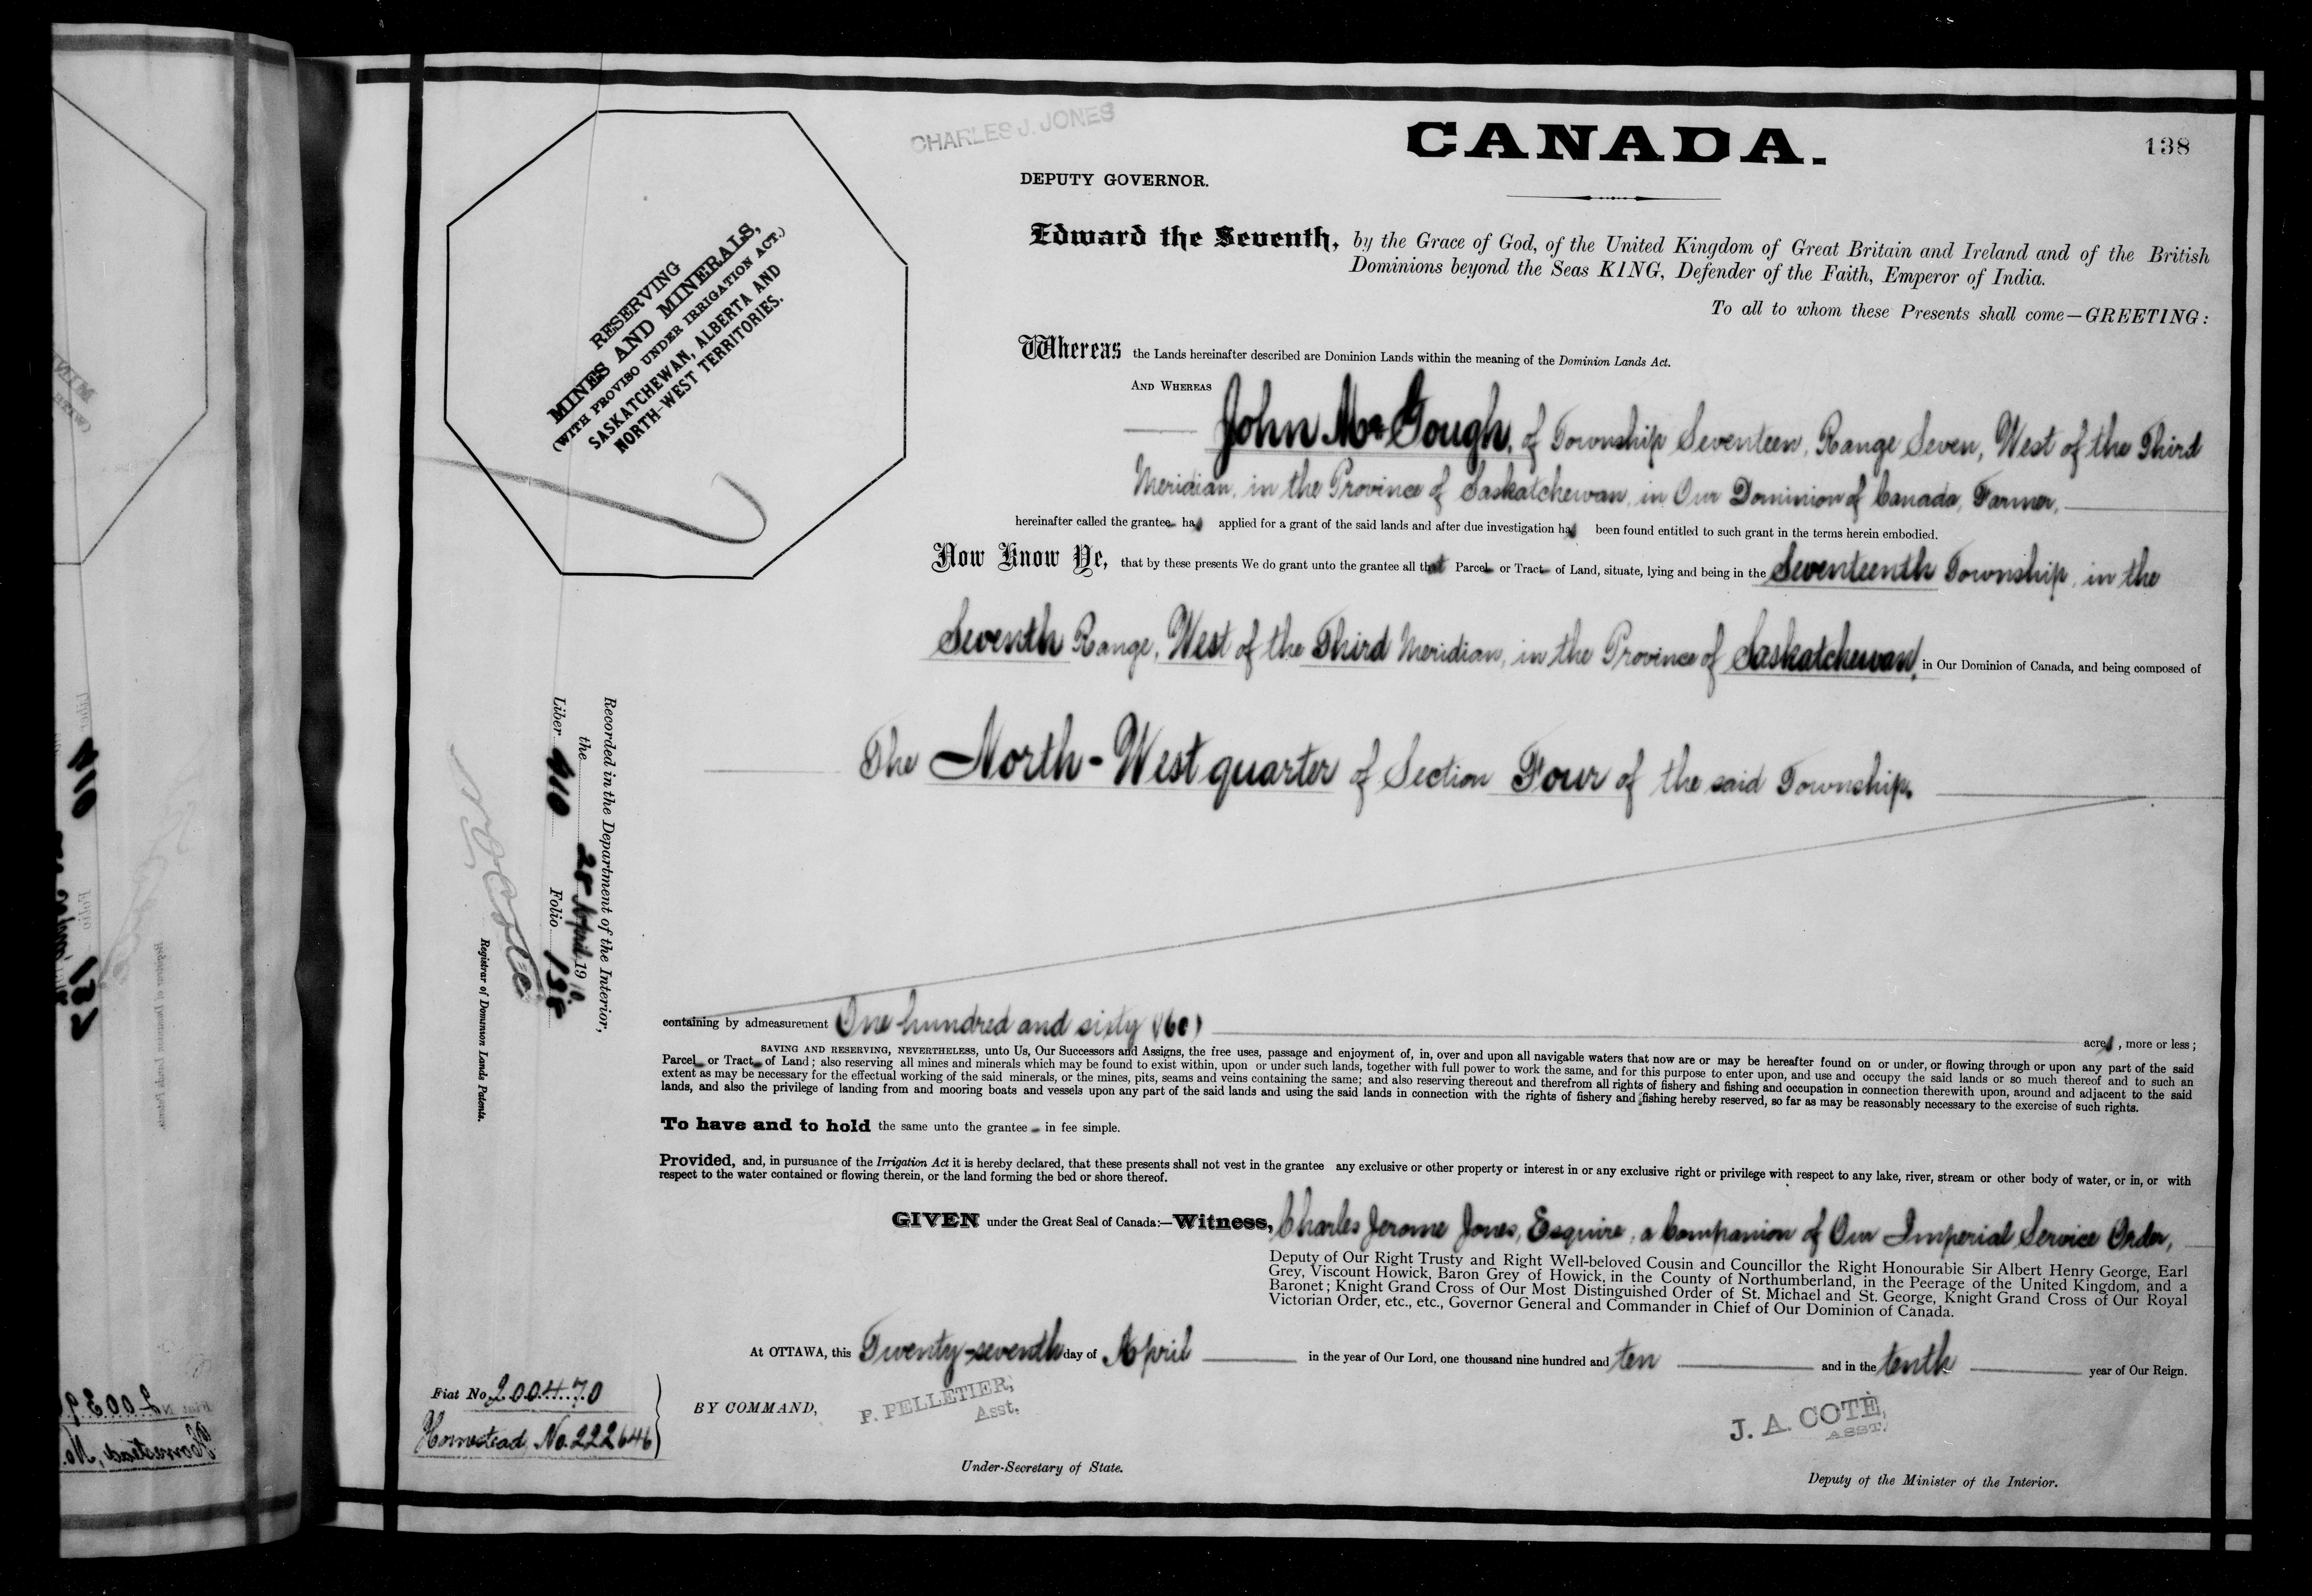 CHARLES J. JONES
CANADA.
138
DEPUTY GOVERNOR.
Edward the Seventh, by the Grace of God, of the United Kingdom of Great Britain and Ireland and of the British
Dominions beyond the Seas KING, Defender of the Faith, Emperor of India.
To all to whom these Presents shall come—GREETING:
RESERVING
MINES AND MINERALS,
(WITH PROVISO UNDER IRRIGATION ACT.)
SASKATCHEWAN, ALBERTA AND
NORTH-WEST TERRITORIES.
Whereas the Lands hereinafter described are Dominion Lands within the meaning of the Dominion Lands Act.
AND WHEREAS
John McGough, of Township Seventeen, Range Seven, West of the Third
Meridian, in the Province of Saskatchewan, in Our Dominion of Canada, Farmer,
hereinafter called the grantee has applied for a grant of the said lands and after due investigation has been found entitled to such grant in the terms herein embodied.
Now Know Ye, that by these presents We do grant unto the grantee all that Parcel or Tract of Land, situate, lying and being in the Seventeenth Township, in the
Seventh Range, West of the Third Meridian, in the Province of Saskatchewan, in Our Dominion of Canada, and being composed of
The North-West quarter of Section Four of the said Township.
Recorded in the Department of the Interior,
the 28 April 1910
Liber 410 Folio 138
Registrar of Dominion Lands Patents.
containing by admeasurement One hundred and sixty (160) acres, more or less;
SAVING AND RESERVING, NEVERTHELESS, unto Us, Our Successors and Assigns, the free uses, passage and enjoyment of, in, over and upon all navigable waters that now are or may be hereafter found on or under, or flowing through or upon any part of the said
Parcel or Tract of Land; also reserving all mines and minerals which may be found to exist within, upon or under such lands, together with full power to work the same, and for this purpose to enter upon, and use and occupy the said lands or so much thereof and to such an
extent as may be necessary for the effectual working of the said minerals, or the mines, pits, seams and veins containing the same; and also reserving thereout and therefrom all rights of fishery and fishing and occupation in connection therewith upon, around and adjacent to the said
lands, and also the privilege of landing from and mooring boats and vessels upon any part of the said lands and using the said lands in connection with the rights of fishery and fishing hereby reserved, so far as may be reasonably necessary to the exercise of such rights.
To have and to hold the same unto the grantee in fee simple.
Provided, and, in pursuance of the Irrigation Act it is hereby declared, that these presents shall not vest in the grantee any exclusive or other property or interest in or any exclusive right or privilege with respect to any lake, river, stream or other body of water, or in, or with
respect to the water contained or flowing therein, or the land forming the bed or shore thereof.
GIVEN under the Great Seal of Canada:—Witness, Charles Jerome Jones, Esquire, a Companion of Our Imperial Service Order,
Deputy of Our Right Trusty and Right Well-beloved Cousin and Councillor the Right Honourable Sir Albert Henry George, Earl
Grey, Viscount Howick, Baron Grey of Howick, in the County of Northumberland, in the Peerage of the United Kingdom, and a
Baronet; Knight Grand Cross of Our Most Distinguished Order of St. Michael and St. George, Knight Grand Cross of Our Royal
Victorian Order, etc., etc., Governor General and Commander in Chief of Our Dominion of Canada.
At OTTAWA, this Twenty-seventh day of April in the year of Our Lord, one thousand nine hundred and ten and in the tenth year of Our Reign.
Fiat No. 200470
Homestead, No. 222646
BY COMMAND,
P. PELLETIER,
Asst.
Under-Secretary of State.
J. A. COTÉ,
ASST.
Deputy of the Minister of the Interior.